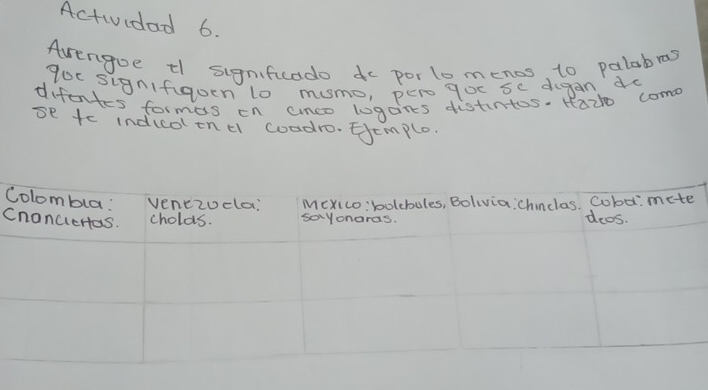 Actividad 6.
Avengoe el significado de por lo menos 10 palabras
que signifiquen lo mismo, pero que se digan de
difentes formas en cinco logares distintos. Hazlo como
se te indical en el cuadro. Ejemplo.
Colombia: Venezuela: Mexico: bulebules, Bolivia: chinclas. Cuba: mete
Cnancletas. cholas. sayonaras. deos.